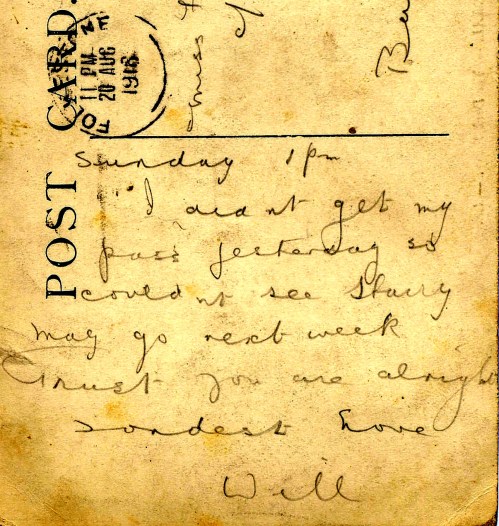 POST CARD.
11 PM
20 AUG
1916
Miss
Sunday 1 pm
I did nt get my
pass yesterday so
could nt see Harry
may go next week
Trust you are alright
Fondest Love
Will